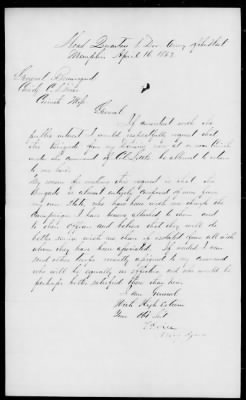 Head Quarters 1 Div Army of
Memphis April 16 1862
General Beauregard
Comdg C. S. Forces
Corinth Miss
General
If consistent with the
public interest I would respectfully request that
the Brigade from my
under the command of Col be allowed to return
to me here.
My reason for making this request is that the
Brigade is almost entirely composed of men from
my own State, who have been with me through the
Campaign. I have become attached to them and
to their officers and believe that they will do
better service with me than in isolated from all with
whom they have been associated. If wished I can
send other troops recently assigned to my command
who will be equally as effective and who would be
perhaps better satisfied than they are.
I am General
With High Esteem
Your Obt Svt